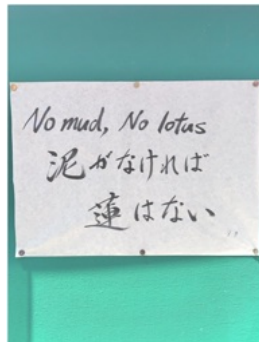 No mud, No lotus
泥がなければ
蓮はない